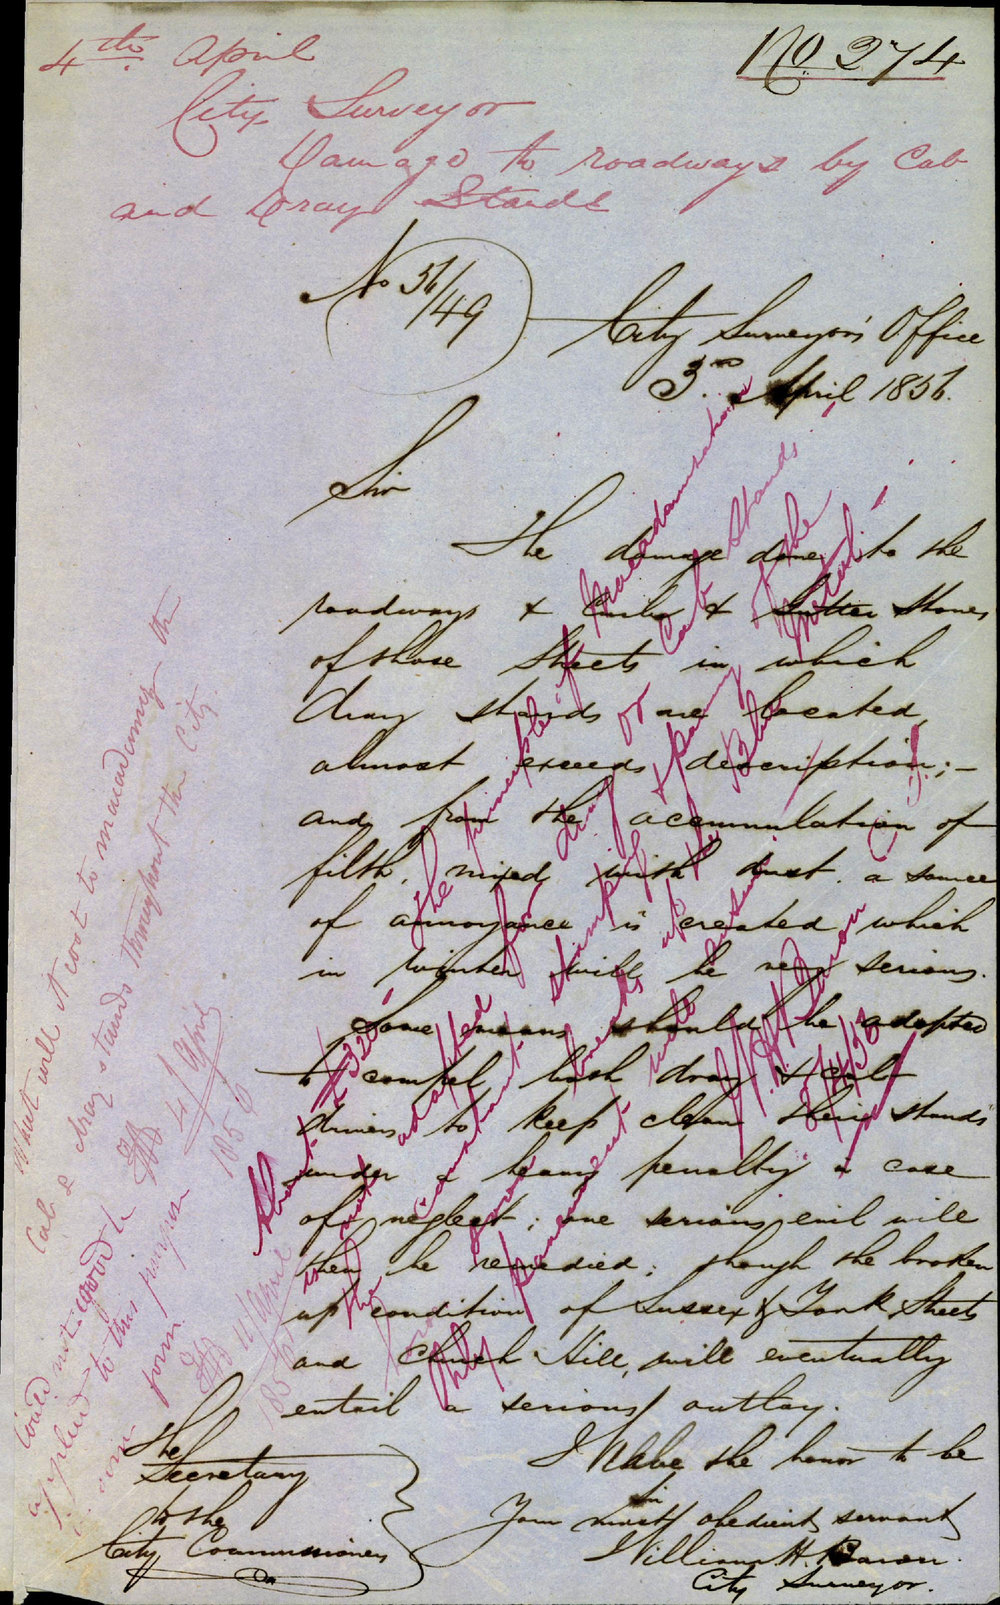 4th April
No. 274
City Surveyor
Damage to roadways by Cab
and Dray Stands
No 56/49
City Surveyor's Office
3rd April 1856.
Sir
The damage done to the
roadways & Curbs & Gutter Stones
of those Streets in which
dray stands are located,
almost exceeds description;—
and from the accumulation of
filth, mixed with dust a source
of annoyance is created which
in winter will be very serious.
Some means should be adopted
to compel both dray & cab
drivers to keep clean their stands
under a heavy penalty in case
of neglect; one serious evil will
then be remedied; though the broken
up condition of Sussex & York Streets
and Church Hill, will eventually
entail a serious outlay.
I have the honor to be
Sir
Your most obedient servant
William H. Baron.
City Surveyor.
The
Secretary
to the
City Commissioners
What will it cost to macadamize the
Cab & dray stands throughout the City
4 April
1856
About £320
The principle of Macadamization
is not adapted for dray or Cab stands
the constant stamping & pawing of the
breaks up the Blue metal.
pavement will
8/4/56
Could not
applied to this purpose
11 April
1856